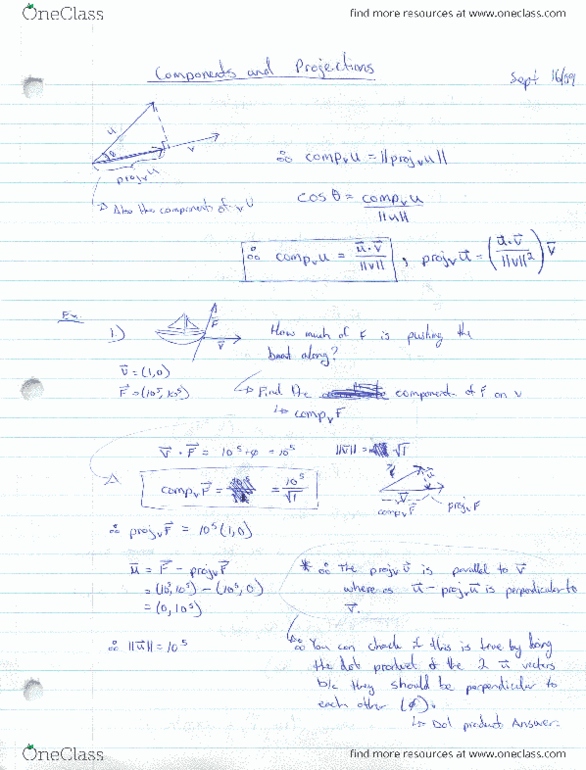 OneClass
find more resources at www.oneclass.com
Components and Projections
Sept 16/09
u
θ
v
projᵥu
Also the components of ᵥU
∴ compᵥu = ||projᵥu||
cos θ = compᵥu / ||u||
∴ compᵥu = u⃗·v⃗ / ||v|| , projᵥu⃗ = (u⃗·v⃗ / ||v||²) v⃗
Ex.
1.)
F⃗
v⃗
How much of F is pushing the
boat along?
v⃗ = (1,0)
F⃗ = (10⁵, 10⁵)
↳ Find the components of F on v
↳ compᵥF
v⃗ · F⃗ = 10⁵ + 0 = 10⁵
||v|| = √1
compᵥF⃗ = = 10⁵ / √1
v
compᵥF
projᵥF
∴ projᵥF⃗ = 10⁵(1,0)
u⃗ = F⃗ - projᵥF⃗
= (10⁵, 10⁵) - (10⁵, 0)
= (0, 10⁵)
∴ ||u⃗|| = 10⁵
* ∴ The projᵥu⃗ is parallel to v⃗
where as u⃗ - projᵥu⃗ is perpendicular to
v⃗.
∴ You can check if this is true by doing
the dot product of the 2 u⃗ vectors
b/c they should be perpendicular to
each other (0).
↳ Dot product Answer.
OneClass
find more resources at www.oneclass.com